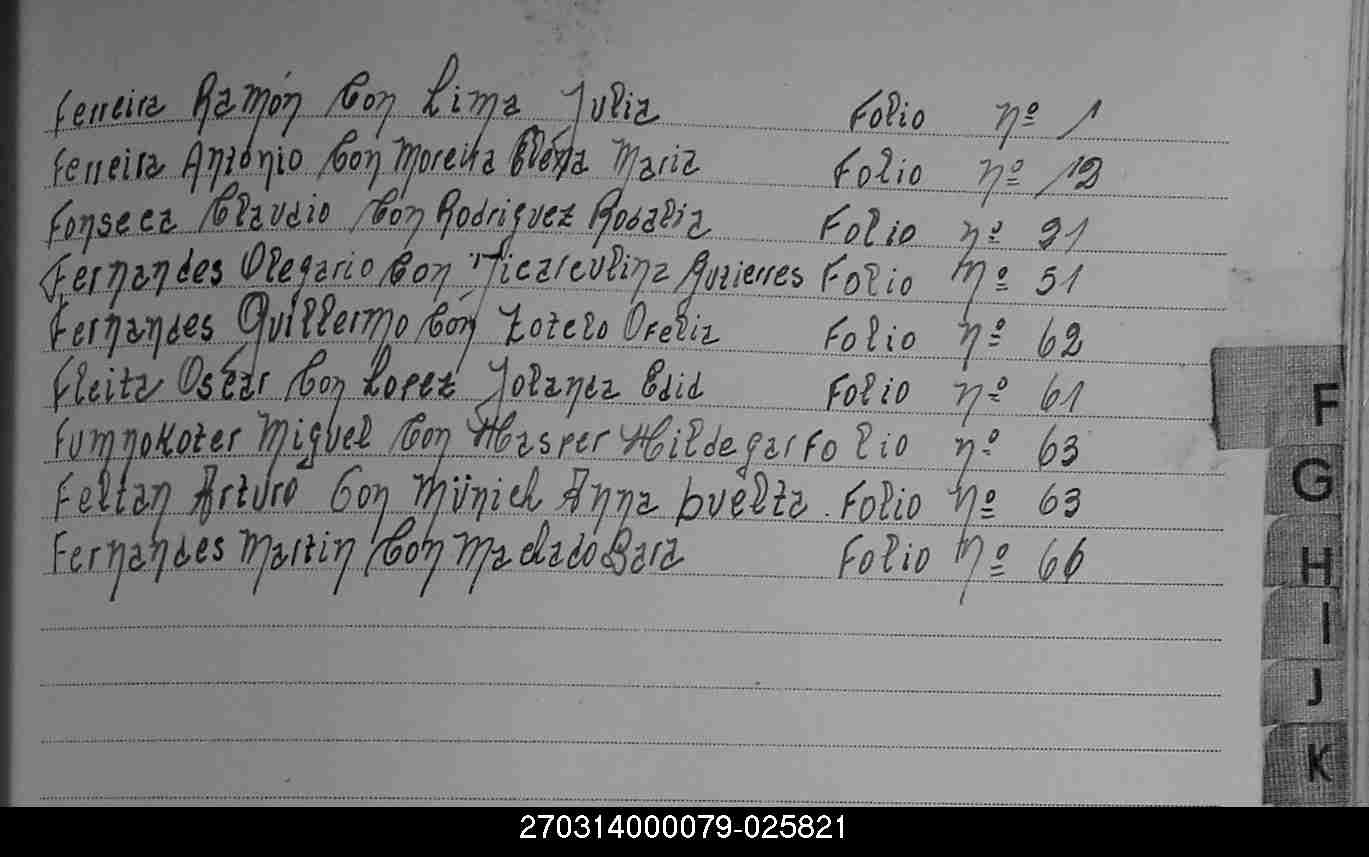 Ferreira Ramón Con Lima Julia Folio nº 1
Ferreira Antonio Con Moreira Elena Maria Folio nº 12
Fonseca Claudio Con Rodriguez Rosalia Folio nº 31
Fernandes Olegario Con Gutierres Folio nº 51
Fernandes Guillermo Con Zotelo Ofelia Folio nº 62
Fleita Oscar Con Lopez Jolanda Edid Folio nº 61
Miguel Con Hasper Hildegar Folio nº 63
Feltan Arturo Con Münich Anna buelta. Folio nº 63
Fernandes Martin Con Machado Sara Folio nº 66
F
G
H
I
J
K
270314000079-025821